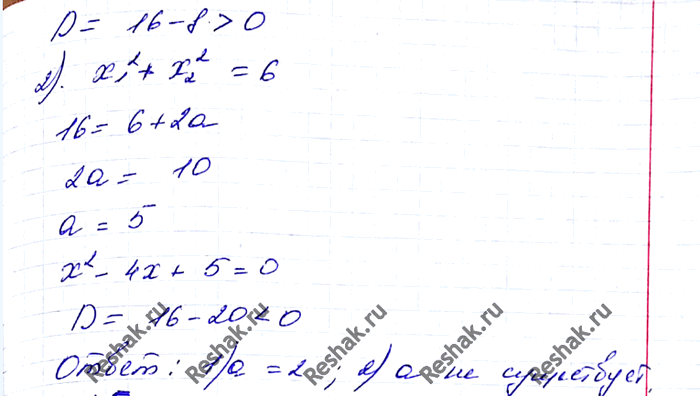 D = 16 - 8 > 0
2). x₁² + x₂² = 6
16 = 6 + 2a
2a = 10
a = 5
x² - 4x + 5 = 0
D = 16 - 20 < 0
Ответ: 1) a = 2; 2) a не существует.
Reshak.ru Reshak.ru Reshak.ru Reshak.ru Reshak.ru